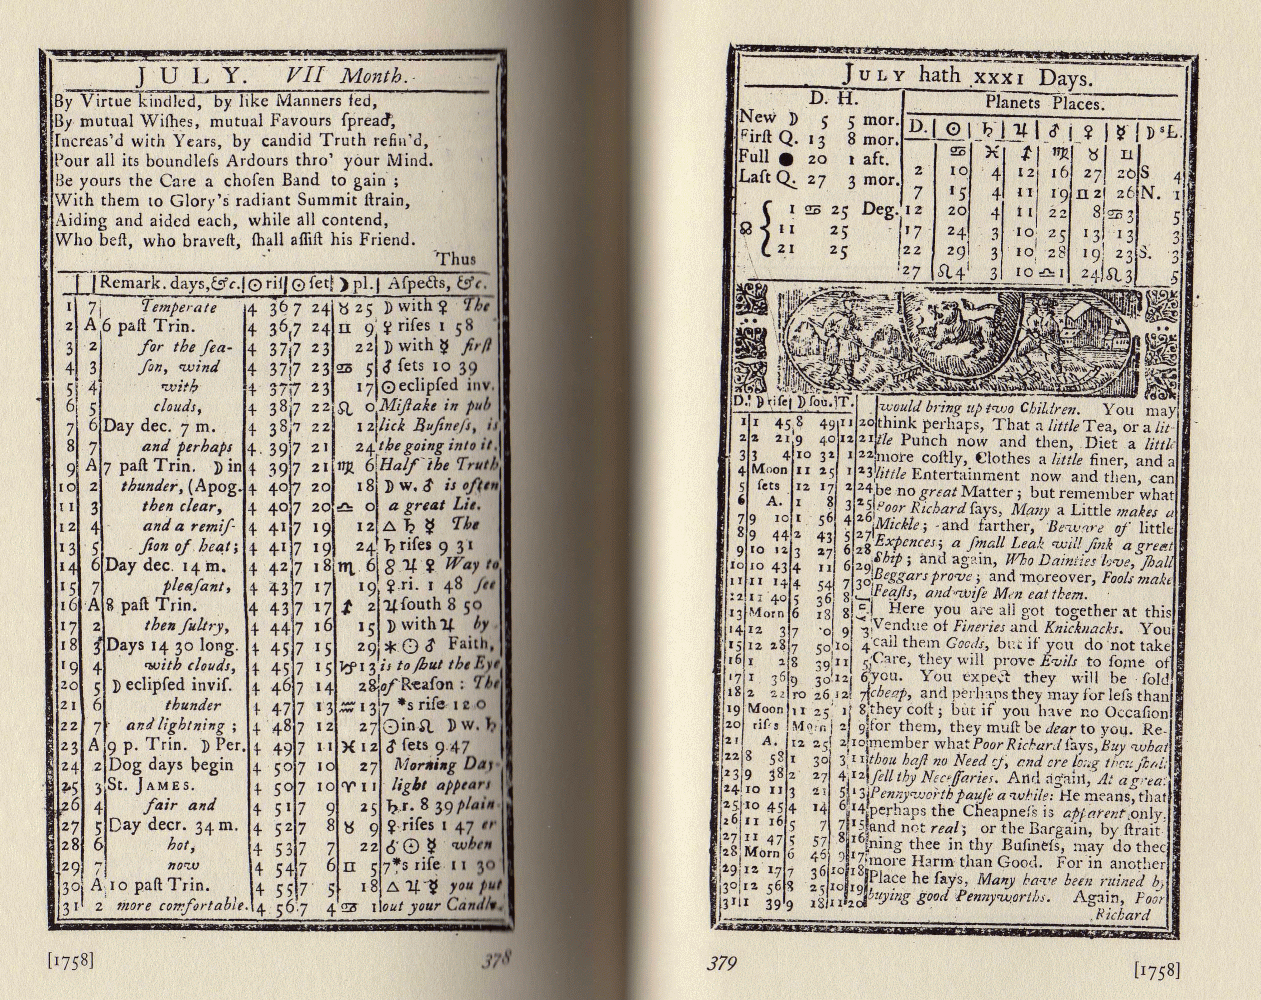 JULY. VII Month.
By Virtue kindled, by like Manners fed,
By mutual Wiſhes, mutual Favours ſpread,
Increas'd with Years, by candid Truth refin'd,
Pour all its boundleſs Ardours thro' your Mind.
Be yours the Care a choſen Band to gain ;
With them to Glory's radiant Summit ſtrain,
Aiding and aided each, while all contend,
Who beſt, who braveſt, ſhall aſſiſt his Friend.
Thus
Remark. days, &c. ☉ riſ ☉ ſet ☽ pl. Aſpects, &c.
1 7 Temperate 4 36 7 24 ♉ 25 ☽ with ♀ The
2 A 6 paſt Trin. 4 36 7 24 ♊ 9 ♀ riſes 1 58
3 2 for the ſea- 4 37 7 23 22 ☽ with ☿ firſt
4 3 ſon, wind 4 37 7 23 ♋ 5 ♂ ſets 10 39
5 4 with 4 37 7 23 17 ☉ eclipſed inv.
6 5 clouds, 4 38 7 22 ♌ 0 Miſtake in pub
7 6 Day dec. 7 m. 4 38 7 22 12 lick Buſineſs, is
8 7 and perhaps 4 39 7 21 24 the going into it.
9 A 7 paſt Trin. ☽ in 4 39 7 21 ♍ 6 Half the Truth
10 2 thunder, (Apog. 4 40 7 20 18 ☽ w. ♂ is often
11 3 then clear, 4 40 7 20 ♎ 0 a great Lie.
12 4 and a remiſ- 4 41 7 19 12 △ ♄ ☿ The
13 5 ſion of heat; 4 41 7 19 24 ♄ riſes 9 31
14 6 Day dec. 14 m. 4 42 7 18 ♏ 6 ☍ ♃ ♀ Way to
15 7 pleaſant, 4 43 7 17 19 ♀ ri. 1 48 ſee
16 A 8 paſt Trin. 4 43 7 17 ♐ 2 ♃ ſouth 8 50
17 2 then ſultry, 4 44 7 16 15 ☽ with ♃ by
18 3 Days 14 30 long. 4 45 7 15 29 ⚹ ☉ ♂ Faith,
19 4 with clouds, 4 45 7 15 ♑ 13 is to ſhut the Eye
20 5 ☽ eclipſed inviſ. 4 46 7 14 28 of Reaſon : The
21 6 thunder 4 47 7 13 ♒ 13 7 *s riſe 12 0
22 7 and lightning ; 4 48 7 12 ☉ in ♌ ☽ w. ♄
23 A 9 p. Trin. ☽ Per. 4 49 7 11 ♓ 12 ♂ ſets 9 47
24 2 Dog days begin 4 50 7 10 27 Morning Day
25 3 St. JAMES. 4 50 7 10 ♈ 11 light appears
26 4 fair and 4 51 7 9 25 ♄ r. 8 39 plain
27 5 Day decr. 34 m. 4 52 7 8 ♉ 9 ♀ riſes 1 47 er
28 6 hot, 4 53 7 7 22 ☌ ☉ ☿ when
29 7 now 4 54 7 6 ♊ 5 7 *s riſe 11 30
30 A 10 paſt Trin. 4 55 7 5 18 △ ♃ ☿ you put
31 2 more comfortable. 4 56 7 4 ♋ 1 out your Candle.
[1758]
378
JULY hath XXXI Days.
D. H.
New ☽ 5 5 mor.
Firſt Q. 13 8 mor.
Full ● 20 1 aft.
Laſt Q. 27 3 mor.
☊ 1 ♋ 25 Deg.
11 25
21 25
Planets Places.
D. ☉ ♄ ♃ ♂ ♀ ☿ ☽ sL.
♋ ♓ ♐ ♍ ♉ ♊
2 10 4 12 16 27 26 S 4
7 15 4 11 19 ♊ 2 26 N. 1
12 20 4 11 22 8 ♋ 3 5
17 24 3 10 25 13 13 3
22 29 3 10 28 19 23 S. 3
27 ♌ 4 3 10 ♎ 1 24 ♌ 3 5
D. ☽ riſe ☽ ſou. T.
1 1 45 8 49 11 20
2 2 21 9 40 12 21
3 3 4 10 32 1 22
4 Moon 11 25 1 23
5 ſets 12 17 2 24
6 A. 1 8 3 25
7 9 10 1 56 4 26
8 9 44 2 43 5 27
9 10 12 3 27 6 28
10 10 43 4 11 6 29
11 11 14 4 54 7 30
12 11 40 5 36 8
13 Morn 6 18 8
14 12 3 7 0 9 3
15 12 28 7 50 10 4
16 1 2 8 39 11 5
17 1 36 9 30 12 6
18 2 22 10 26 12 7
19 Moon 11 25 1 8
20 riſes Morn 2 9
21 A. 12 25 2 10
22 8 58 1 30 3 11
23 9 38 2 27 4 12
24 10 11 3 21 5 13
25 10 45 4 14 6 14
26 11 16 5 7 7 15
27 11 47 5 57 8 16
28 Morn 6 46 9 17
29 12 17 7 36 10 18
30 12 56 8 25 10 19
31 1 39 9 18 11 20
would bring up two Children. You may
think perhaps, That a little Tea, or a lit-
tle Punch now and then, Diet a little
more coſtly, Clothes a little finer, and a
little Entertainment now and then, can
be no great Matter ; but remember what
Poor Richard ſays, Many a Little makes a
Mickle ; and farther, Beware of little
Expences ; a ſmall Leak will ſink a great
Ship ; and again, Who Dainties love, ſhall
Beggars prove ; and moreover, Fools make
Feaſts, and wiſe Men eat them.
Here you are all got together at this
Vendue of Fineries and Knicknacks. You
call them Goods, but if you do not take
Care, they will prove Evils to ſome of
you. You expect they will be ſold
cheap, and perhaps they may for leſs than
they coſt ; but if you have no Occaſion
for them, they muſt be dear to you. Re-
member what Poor Richard ſays, Buy what
thou haſt no Need of, and ere long thou ſhalt
ſell thy Neceſſaries. And again, At a great
Pennyworth pauſe a while : He means, that
perhaps the Cheapneſs is apparent only,
and not real ; or the Bargain, by ſtrait-
ning thee in thy Buſineſs, may do thee
more Harm than Good. For in another
Place he ſays, Many have been ruined by
buying good Pennyworths. Again, Poor
Richard
379
[1758]